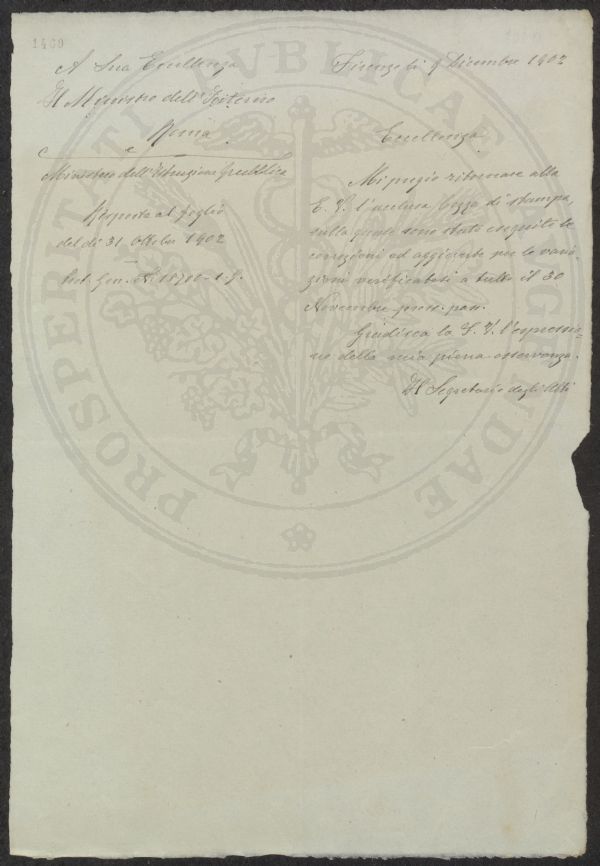 1460
A Sua Eccellenza
Il Ministro dell'Interno
Roma
e
Ministero dell'Istruzione Pubblica
Risposta al foglio
del dì 31 Ottobre 1902
Prot. Gen. N.
Firenze li 9 Dicembre 1902
Eccellenza
Mi pregio ritornare alla
E. V. l'acclusa bozza di stampa,
sulla quale sono state eseguite le
correzioni ed aggiunte per le varia-
zioni verificatesi a tutto il 30
Novembre pross. pass.
Gradisca la E. V. l'espressio-
ne della mia piena osservanza.
Il Segretario degli Atti
PROSPERITATI PVBLICAE AVGENDAE